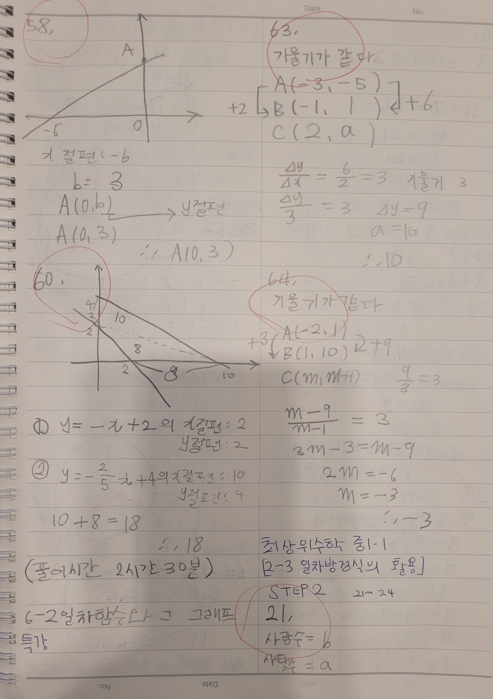 58.
A
-6
0
x 절편: -6
b = 3
A(0, b) → y절편
A(0, 3)
∴ A(0, 3)
60.
4
3
2
10
8
2
8
10
① y = -x + 2 의 x절편: 2
y절편: 2
② y = -2/5 x + 4의 x절편: 10
y절편: 4
10 + 8 = 18
∴ 18
(풀이시간 2시간 30분)
6-2 일차함수와 그 그래프
특강
Date.
No.
63.
기울기가 같다.
A(-3, -5)
+2 B(-1, 1) +6
C(2, a)
Δy/Δx = 6/2 = 3 기울기 3
Δy/3 = 3 Δy = 9
a = 10
∴ 10
64.
기울기가 같다
+3 A(-2, 1)
B(1, 10) +9
C(m, m+1) 9/3 = 3
m-9/m-1 = 3
3m - 3 = m - 9
2m = -6
m = -3
∴ -3
최상위수학 중1-1
[2-3 일차방정식의 활용]
STEP 2 21~24
21.
사람수 = b
= a
Date.
No.